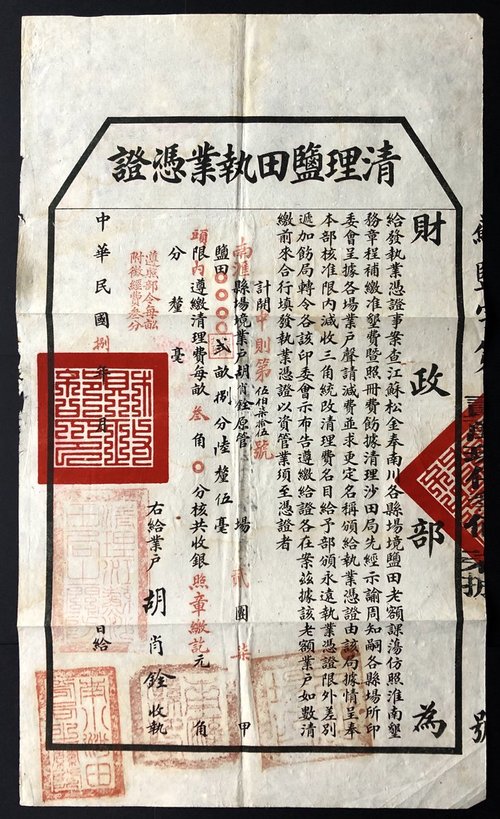 清理鹽田執業憑證
財政部為
給發執業憑證事案查江蘇松金奉南川各縣場境鹽田老額課蕩仿照淮南墾
務章程補繳准墾費暨照冊費飭據清理沙田局先經示諭周知嗣各縣場所印
委會呈據各場業戶聲請減費並求更定名稱頒給執業憑證由該局據情呈奉
本部核准限內減收三角統改清理費名目給予部頒永遠執業憑證限外差別
遞加飭局轉令各該印委會示布告遵繳給證各在案茲據該老額業戶如數清
繳前來合行填發執業憑證以資管業須至憑證者
計開中則第伍伯柒拾伍號
南滙縣場境業戶胡肖銓原管 場 貳團柒甲
鹽田〇〇〇〇貳畝捌分陸釐伍毫
頭限內遵繳清理費每畝叁角〇分核共收銀照章繳訖元 角
分 釐 毫
遵照部令每畝
附徵經費叁分
右給業戶胡肖銓收執
中華民國捌年 月 日給